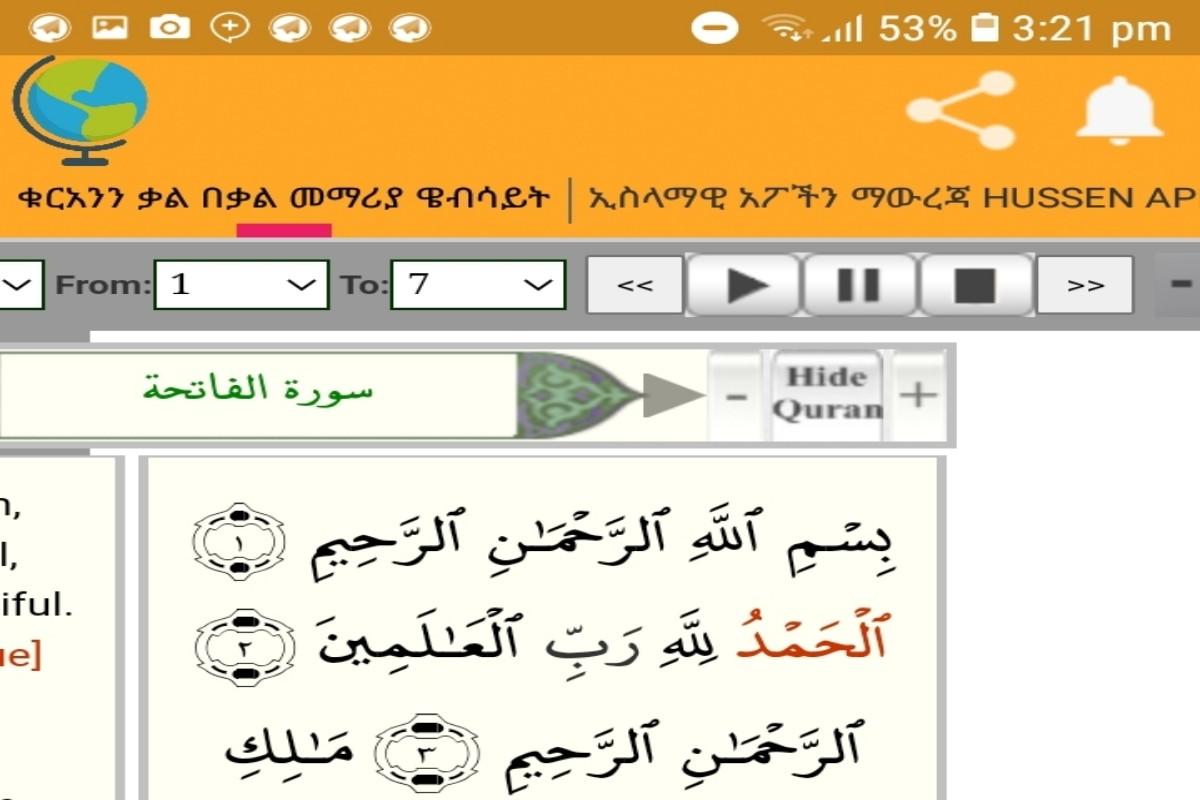 53% 3:21 pm
ቁርአንን ቃል በቃል መማሪያ ዌብሳይት | ኢስላማዊ አፖችን ማውረጃ HUSSEN AP
From: 1 To: 7 << >> -
سورة الفاتحة
- Hide Quran +
iful.
بِسْمِ ٱللَّهِ ٱلرَّحْمَـٰنِ ٱلرَّحِيمِ ١
ٱلْحَمْدُ لِلَّهِ رَبِّ ٱلْعَـٰلَمِينَ ٢
ٱلرَّحْمَـٰنِ ٱلرَّحِيمِ ٣ مَـٰلِكِ